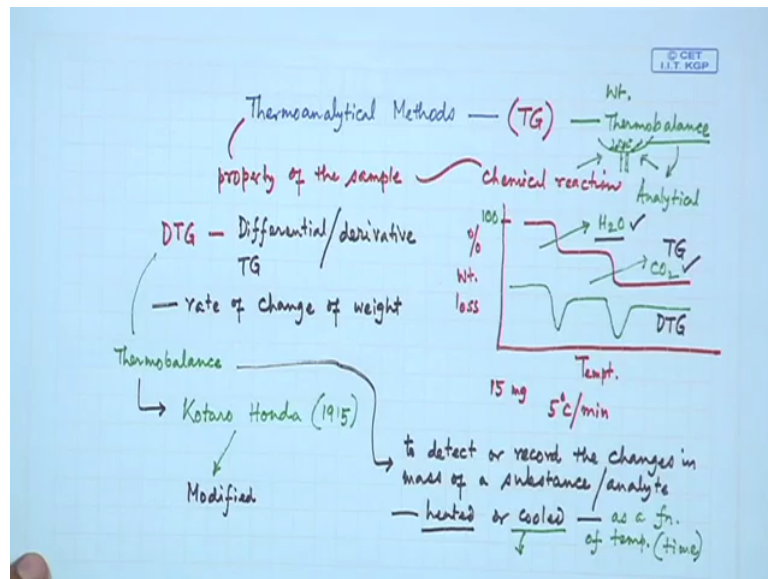 © CET
I.I.T. KGP
Wt.
Thermoanalytical Methods — (TG) — Thermobalance
property of the sample chemical reaction
Analytical
DTG – Differential/derivative
TG
— rate of change of weight
100
%
Wt.
loss
H2O ✓
TG
CO2 ✓
DTG
Tempt.
15 mg 5°C/min
Thermobalance
Kotaro Honda (1915)
Modified
to detect or record the changes in
mass of a substance/analyte
— heated or cooled — as a fn.
of temp. (time)